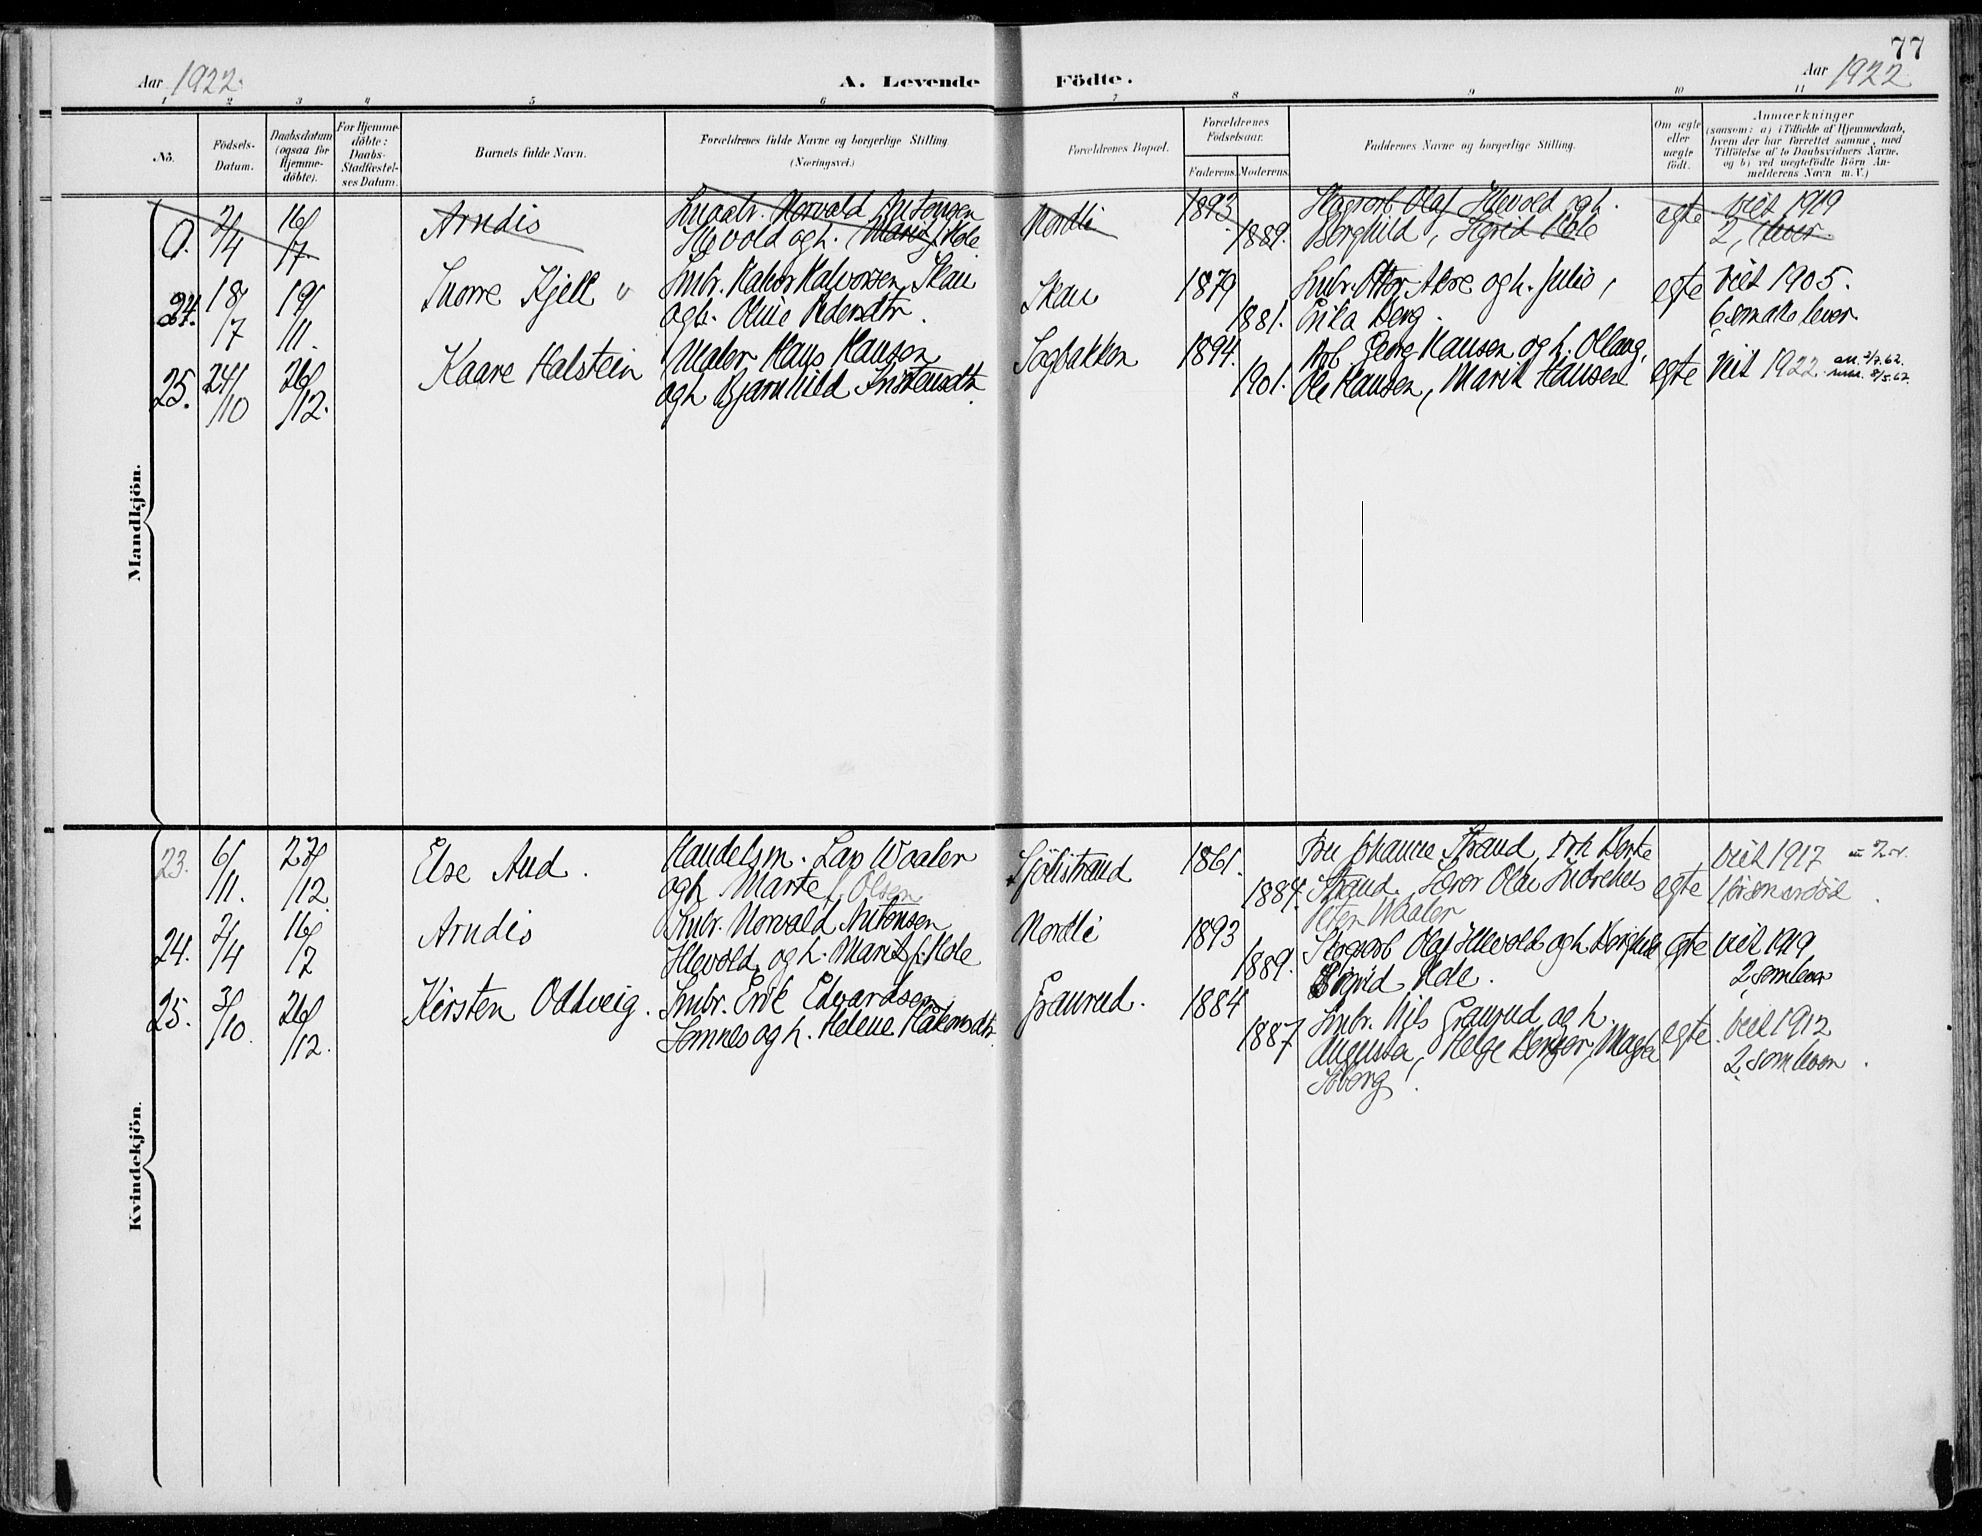 77
Aar 1922.
A. Levende Födte.
Aar 1922
1 2 3 4 5 6 7 8 9 10 11
No.
Födsels-Datum.
Daabsdatum (ogsaa for Hjemme-döbte).
For Hjemme-döbte: Daabs-Stadfæstel-ses Datum.
Barnets fulde Navn.
Forældrenes fulde Navne og borgerlige Stilling
(Næringsvei.)
Forældrenes Bopæl.
Forældrenes Födselsaar.
Faderens. Moderens.
Faddernes Navne og borgerlige Stilling.
Om ægte eller uægte födt.
Anmærkninger
(saasom: a) i Tilfælde af Hjemmedaab,
hvem der har forrettet samme, med
Tilföielse af to Daabsvidners Navne,
og b) ved uægtefödte Börn An-
melderens Navn m. V.)
Mandkjön.
0. 2/4 16/7. Arndis
Norvald Antonsen
Hevold og h. Marit Hole
Nordli 1893 1889.
Skogsarb Olaf Hevold og h.
Borghild, Sigrid Hole
egte viet 1919
2, lever.
24. 18/7 19/11. Snorre Kjell
Smbr. Halvor Halvorsen Skau
og h. Oline Pedersdtr.
Skau 1879 1881.
Smbr. Otto og h. Julie,
Erika Berg.
egte viet 1905.
6 som alle lever.
25. 24/10 26/12. Kaare Halstein
Maler Hans Hansen
og h Bjarnhild
Sagbakken 1894. 1901.
Arb Georg Hansen og h. Ollaug,
Ole Hansen, Marit Hansen
egte Viet 1922. 2/7.62.
8/5.62.
Kvindekjön.
23. 6/11. 27/12 Else Aud.
Handelsm. Lars Waaler
og h Marte f. Olsen
Sjölistrand 1861. 1884.
Fru Johanne Strand, Frk Berte
Strand, Lærer Olav
Peter Waaler
egte Viet 1917
24. 2/4 16/7 Arndis
Smbr. Norvald Antonsen
Hevold og h. Marit f. Hole
Nordli 1893 1889.
Skogarb Olaf Hevold og h Borghild
Sigrid Hole.
egte viet 1919
2 som lever
25. 3/10 26/12. Kirsten Oddveig.
Smbr. Erik Edvardsen
Somnes og h. Helene Håkonsdtr.
Graurud. 1884 1887
Smbr. Nils Graurud og h.
Augusta, Helge Berger, Magda
Soberg.
egte. viet 1912
2 som lever.